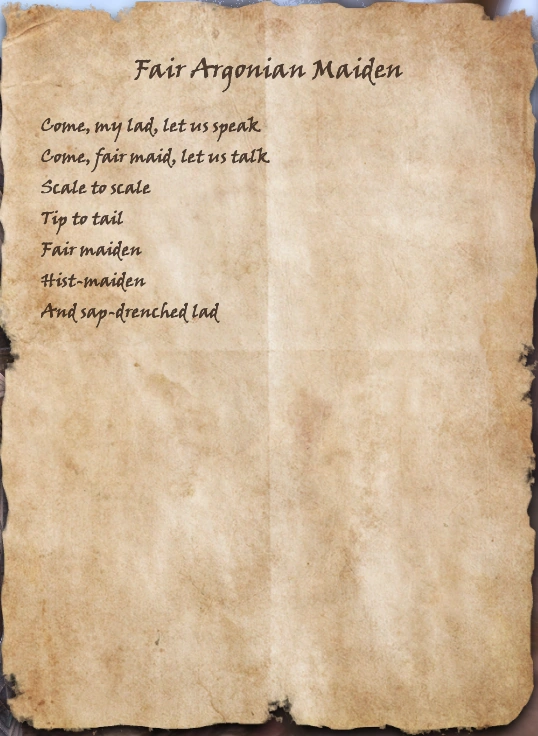 Fair Argonian Maiden
Come, my lad, let us speak
Come, fair maid, let us talk
Scale to scale
Tip to tail
Fair maiden
Hist-maiden
And sap-drenched lad